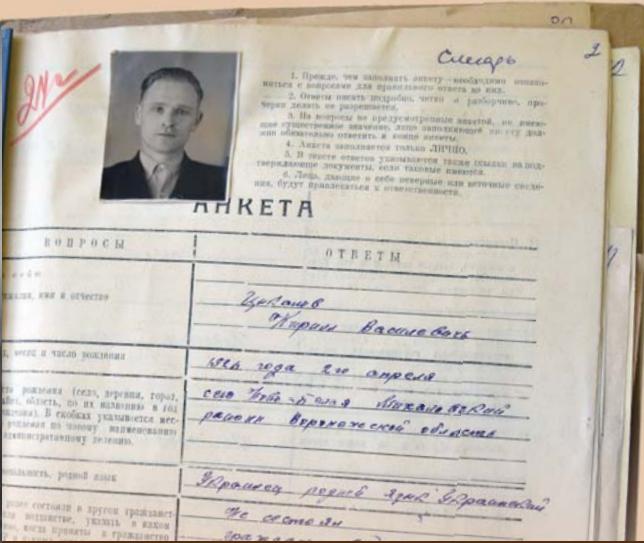 Слесарь
2
24г
1. Прежде, чем заполнять анкету—необходимо ознако-
миться с вопросами для правильного ответа на них.
2. Ответы писать подробно, четко и разборчиво, про-
черки делать не разрешается.
3. На вопросы не предусмотренные анкетой, но имею-
щие существенное значение, лицо заполняющее анкету дол-
жно обязательно ответить в конце анкеты.
4. Анкета заполняется только ЛИЧНО.
5. В тексте ответов указываются также ссылки на под-
тверждающие документы, если таковые имеются.
6. Лица, дающие о себе неверные или неточные сведе-
ния, будут привлекаться к ответственности.
АНКЕТА
ВОПРОСЫ
ОТВЕТЫ
имя и отчество
Кирилл Васильевич
месяц и число рождения
1924 года 2го апреля
рождения (село, деревня, город,
область, по их названию в год
рождения). В скобках указывается мес-
рождения по новому наименованию
административному делению.
село
район Воронежской области
родной язык
Украинец родной язык Украинский
состояли в другом гражданст-
подданстве, указать в каком
когда приняты в гражданство
Не состоял